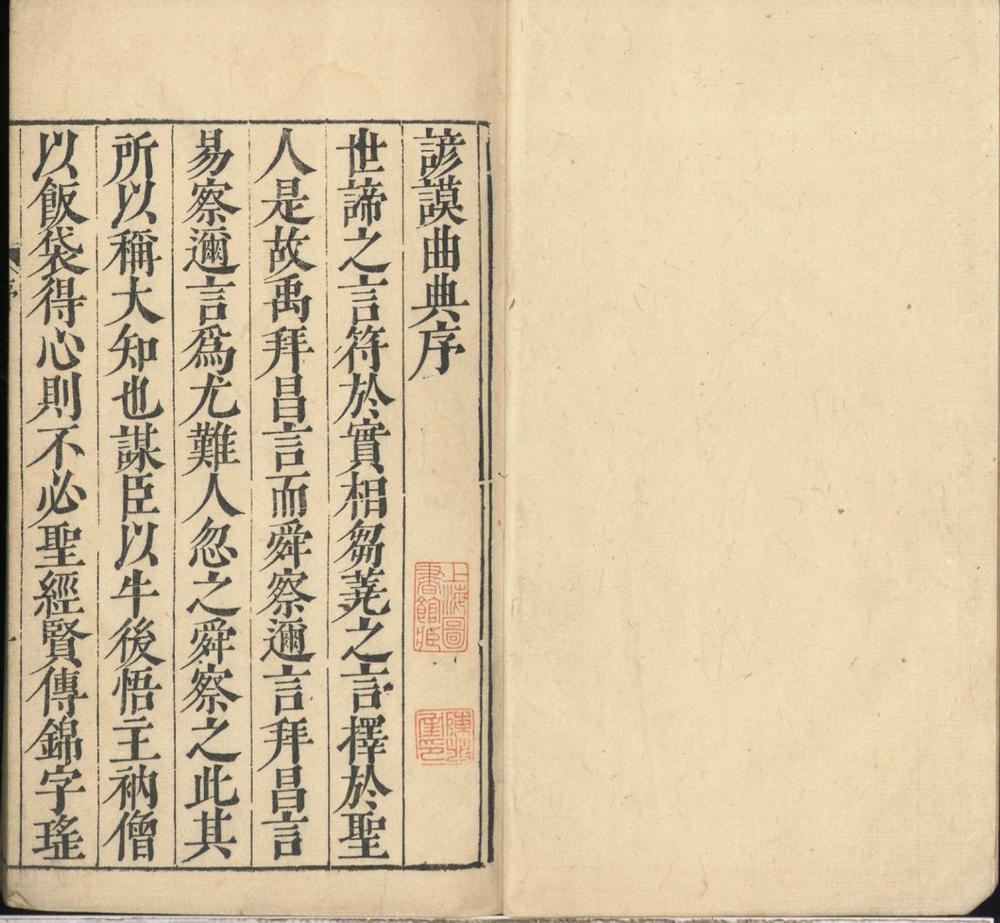 諺謨曲典序
世諦之言符於實相芻蕘之言擇於聖
人是故禹拜昌言而舜察邇言拜昌言
易察邇言爲尤難人忽之舜察之此其
所以稱大知也謀臣以牛後悟主衲僧
以飯袋得心則不必聖經賢傳錦字瑤
上海圖
書館藏